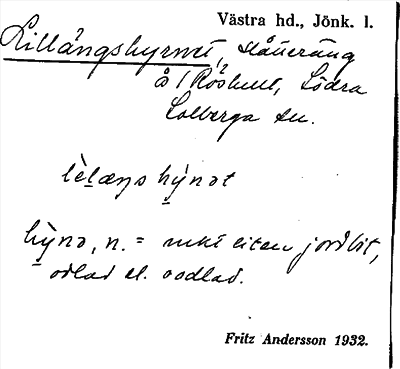 Västra hd., Jönk. l.
Lillängshyrnet, slåtteräng
å 1 Röshult, Södra
Solberga sn.
lèlæŋs hỳnət
hỳnə, n. = mkt liten jordbit,
odlad el. oodlad.
Fritz Andersson 1932.